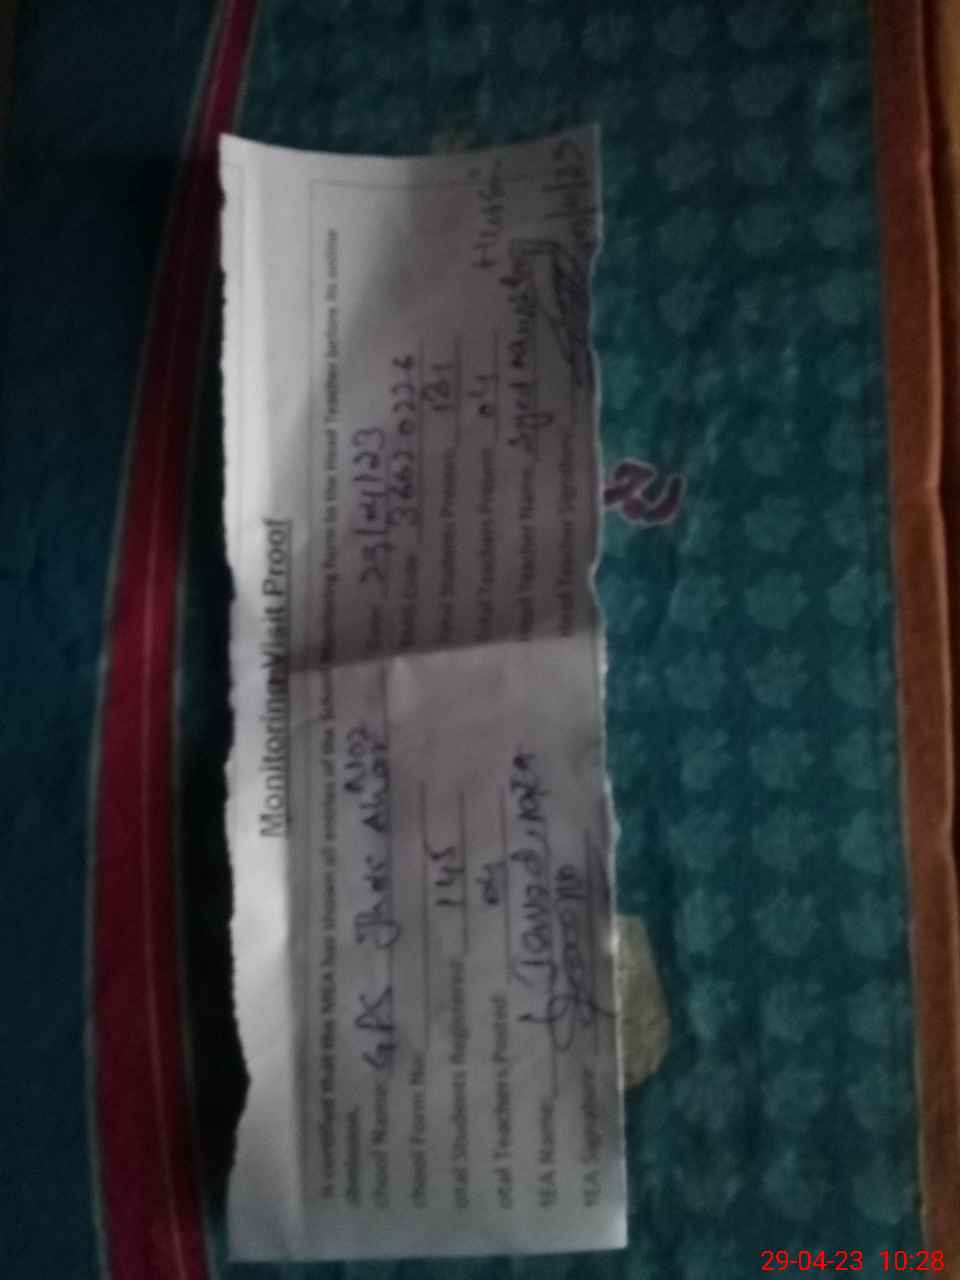 Monitoring Visit Proof
It is certified that the MEA has shown all entries of the School Monitoring Form to the Head Teacher before its online
School Name GPS Jhoke Alvar No2 Date 29/04/23
School Form No. EMIS Code 36620226
Total Students Registered 145 Total Students Present 121
Total Teachers Posted 04 Total Teachers Present 04
MEA Name Javed Head Teacher Name Syed Hussain
MEA Signature Head Teacher Signature
29-04-23 10:28